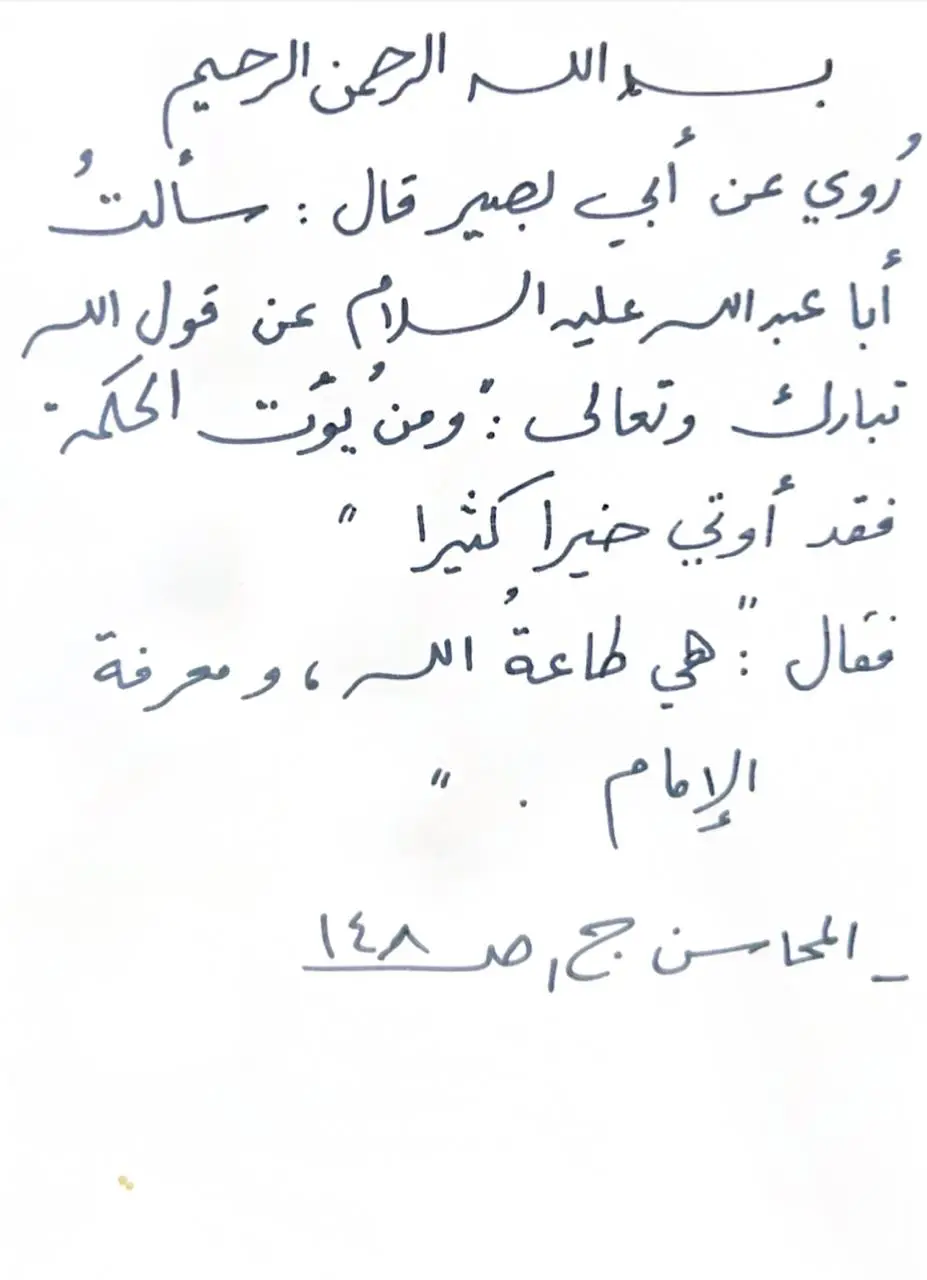 بسم الله الرحمن الرحيم
رُوي عن أبي بصير قال : سألتُ
أبا عبد الله عليه السلام عن قول الله
تبارك وتعالى : "ومن يُؤت الحكمة
فقد أوتي خيرا كثيرا "
فقال : "هي طاعةُ الله ، ومعرفة
الإمام . "
_ المحاسن ج١ صـ ١٤٨